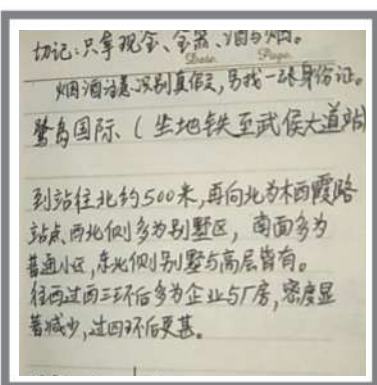 切记:只拿现金、金器、酒与烟。
Date. Page.
烟酒注意识别真假,另找一张身份证。
鹭岛国际、(坐地铁至武侯大道站
到站往北约500米,再向北为木西霞路
站点西北侧多为别墅区,南面多为
普通小区,东北侧别墅与高层皆有。
往西过西三环后多为企业与厂房,密度显
著减少,过四环后更甚。